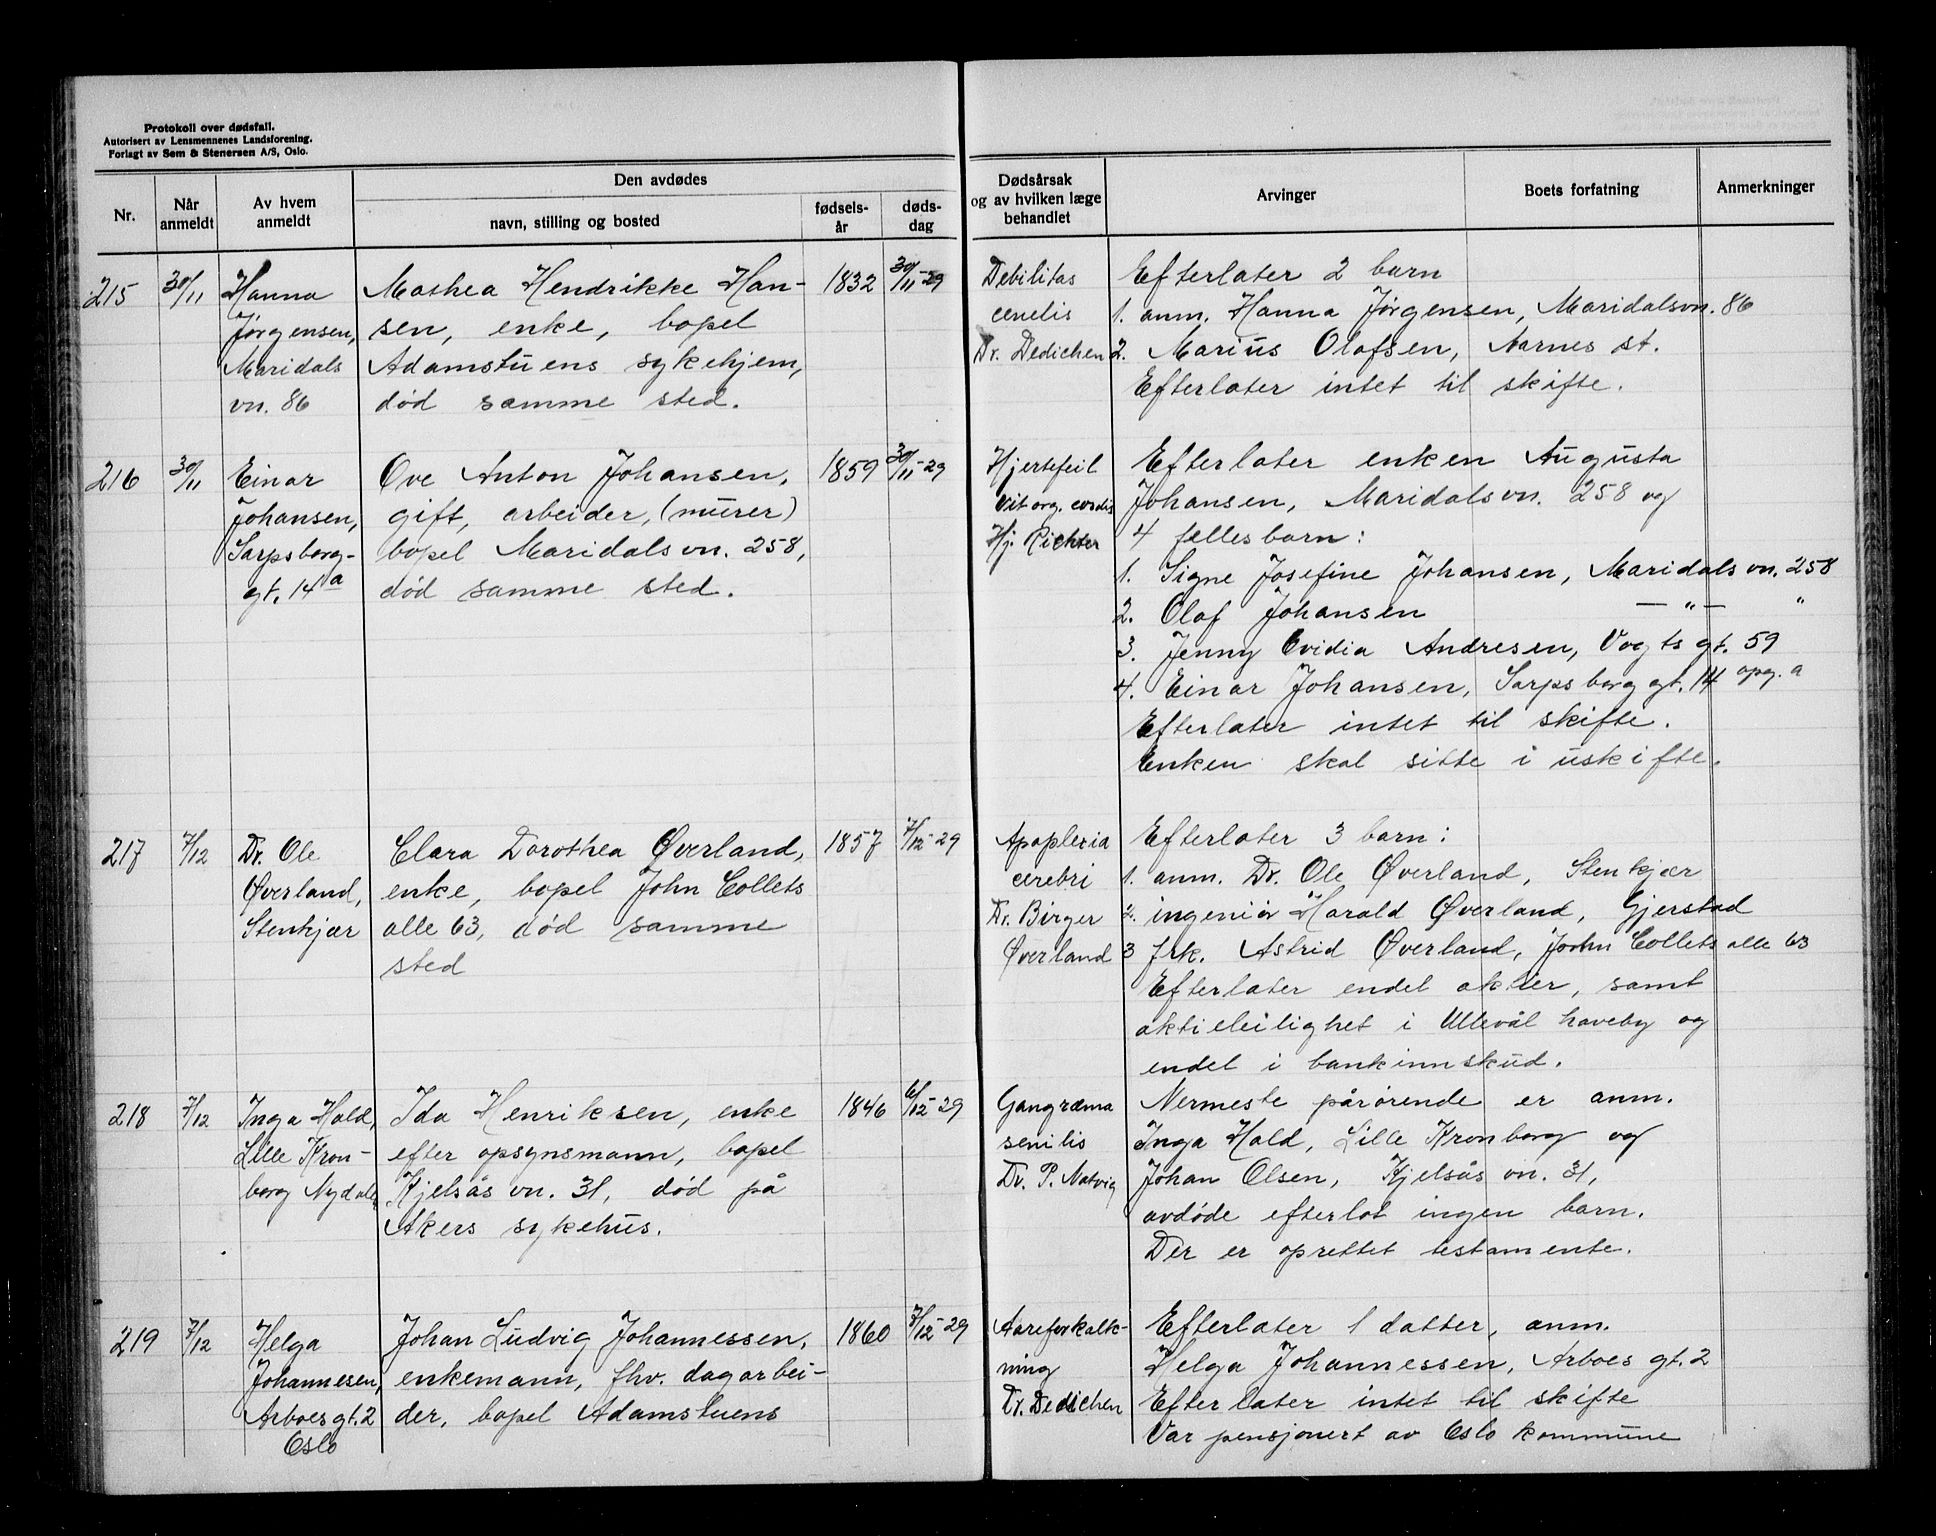 Protokoll over dødsfall.
Autorisert av Lensmennenes Landsforening.
Forlagt av Sem & Stenersen A/S, Oslo.
Nr.
Når
anmeldt
Av hvem
anmeldt
Den avdødes
navn, stilling og bosted
fødsels-
år
døds-
dag
Dødsårsak
og av hvilken læge
behandlet
Arvinger
Boets forfatning
Anmerkninger
215
30/11
Hanna
Jørgensen,
Maridals
vn. 86
Mathea Hendrikke Han-
sen, enke, bopel
Adamstuens sykehjem,
død samme sted.
1832
30/11-29
Debilitas
cenelis
Dr. Dedichen
Efterlater 2 barn
1. anm. Hanna Jørgensen, Maridalsvn. 86
2. Marius Olafsen, Aarnes st.
Efterlater intet til skifte.
216
30/11
Einar
Johansen,
Sarpsborg-
gt. 14a
Ove Anton Johansen,
gift, arbeider, (murer)
bopel Maridalsvn. 258,
død samme sted.
1859
30/11-29
Hjertefeil
Vit org. cordis
Hj. Richter
Efterlater enken Augusta
Johansen, Maridalsvn. 258 og
4 fellesbarn:
1. Signe Josefine Johansen, Maridalsvn. 258
2. Olaf Johansen — " — "
3. Jenny Ovidia Andresen, Vogts gt. 59
4. Einar Johansen, Sarpsborggt. 14 opg. a
Efterlater intet til skifte.
Enken skal sitte i uskifte.
217
7/12
Dr. Ole
Øverland,
Stenkjær
Clara Dorothea Øverland,
enke, bopel John Collets
alle 63, død samme
sted
1857
7/12-29
Apoplexia
cerebri
Dr. Birger
Øverland
Efterlater 3 barn:
1. anm. Dr. Ole Øverland, Stenkjær
2. ingeniør Harald Øverland, Gjerstad
3 frk. Astrid Øverland, John Collets alle 63
Efterlater endel aktier, samt
aktieleilighet i Ullevål haveby og
endel i bankinnskud.
218
7/12
Inga Hald,
Lille Kron-
borg Nydalen
Ida Henriksen, enke
efter opsynsmann, bopel
Kjelsås vn. 31, død på
Akers sykehus.
1846
6/12-29
Gangræma
senilis
Dr. P. Natvig
Nermeste pårørende er anm.
Inga Hald, Lille Kronborg og
Johan Olsen, Kjelsås vn. 31,
avdøde efterlot ingen barn.
Der er oprettet testamente.
219
7/12
Helga
Johannesen,
Arboes gt. 2
Oslo
Johan Ludvig Johannessen,
enkemann, fhv. dagarbei-
der, bopel Adamstuens
1860
7/12-29
Aareforkalk-
ning
Dr. Dedichen
Efterlater 1 datter, anm.
Helga Johannessen, Arboes gt. 2
Efterlater intet til skifte
Var pensjonert av Oslo kommune